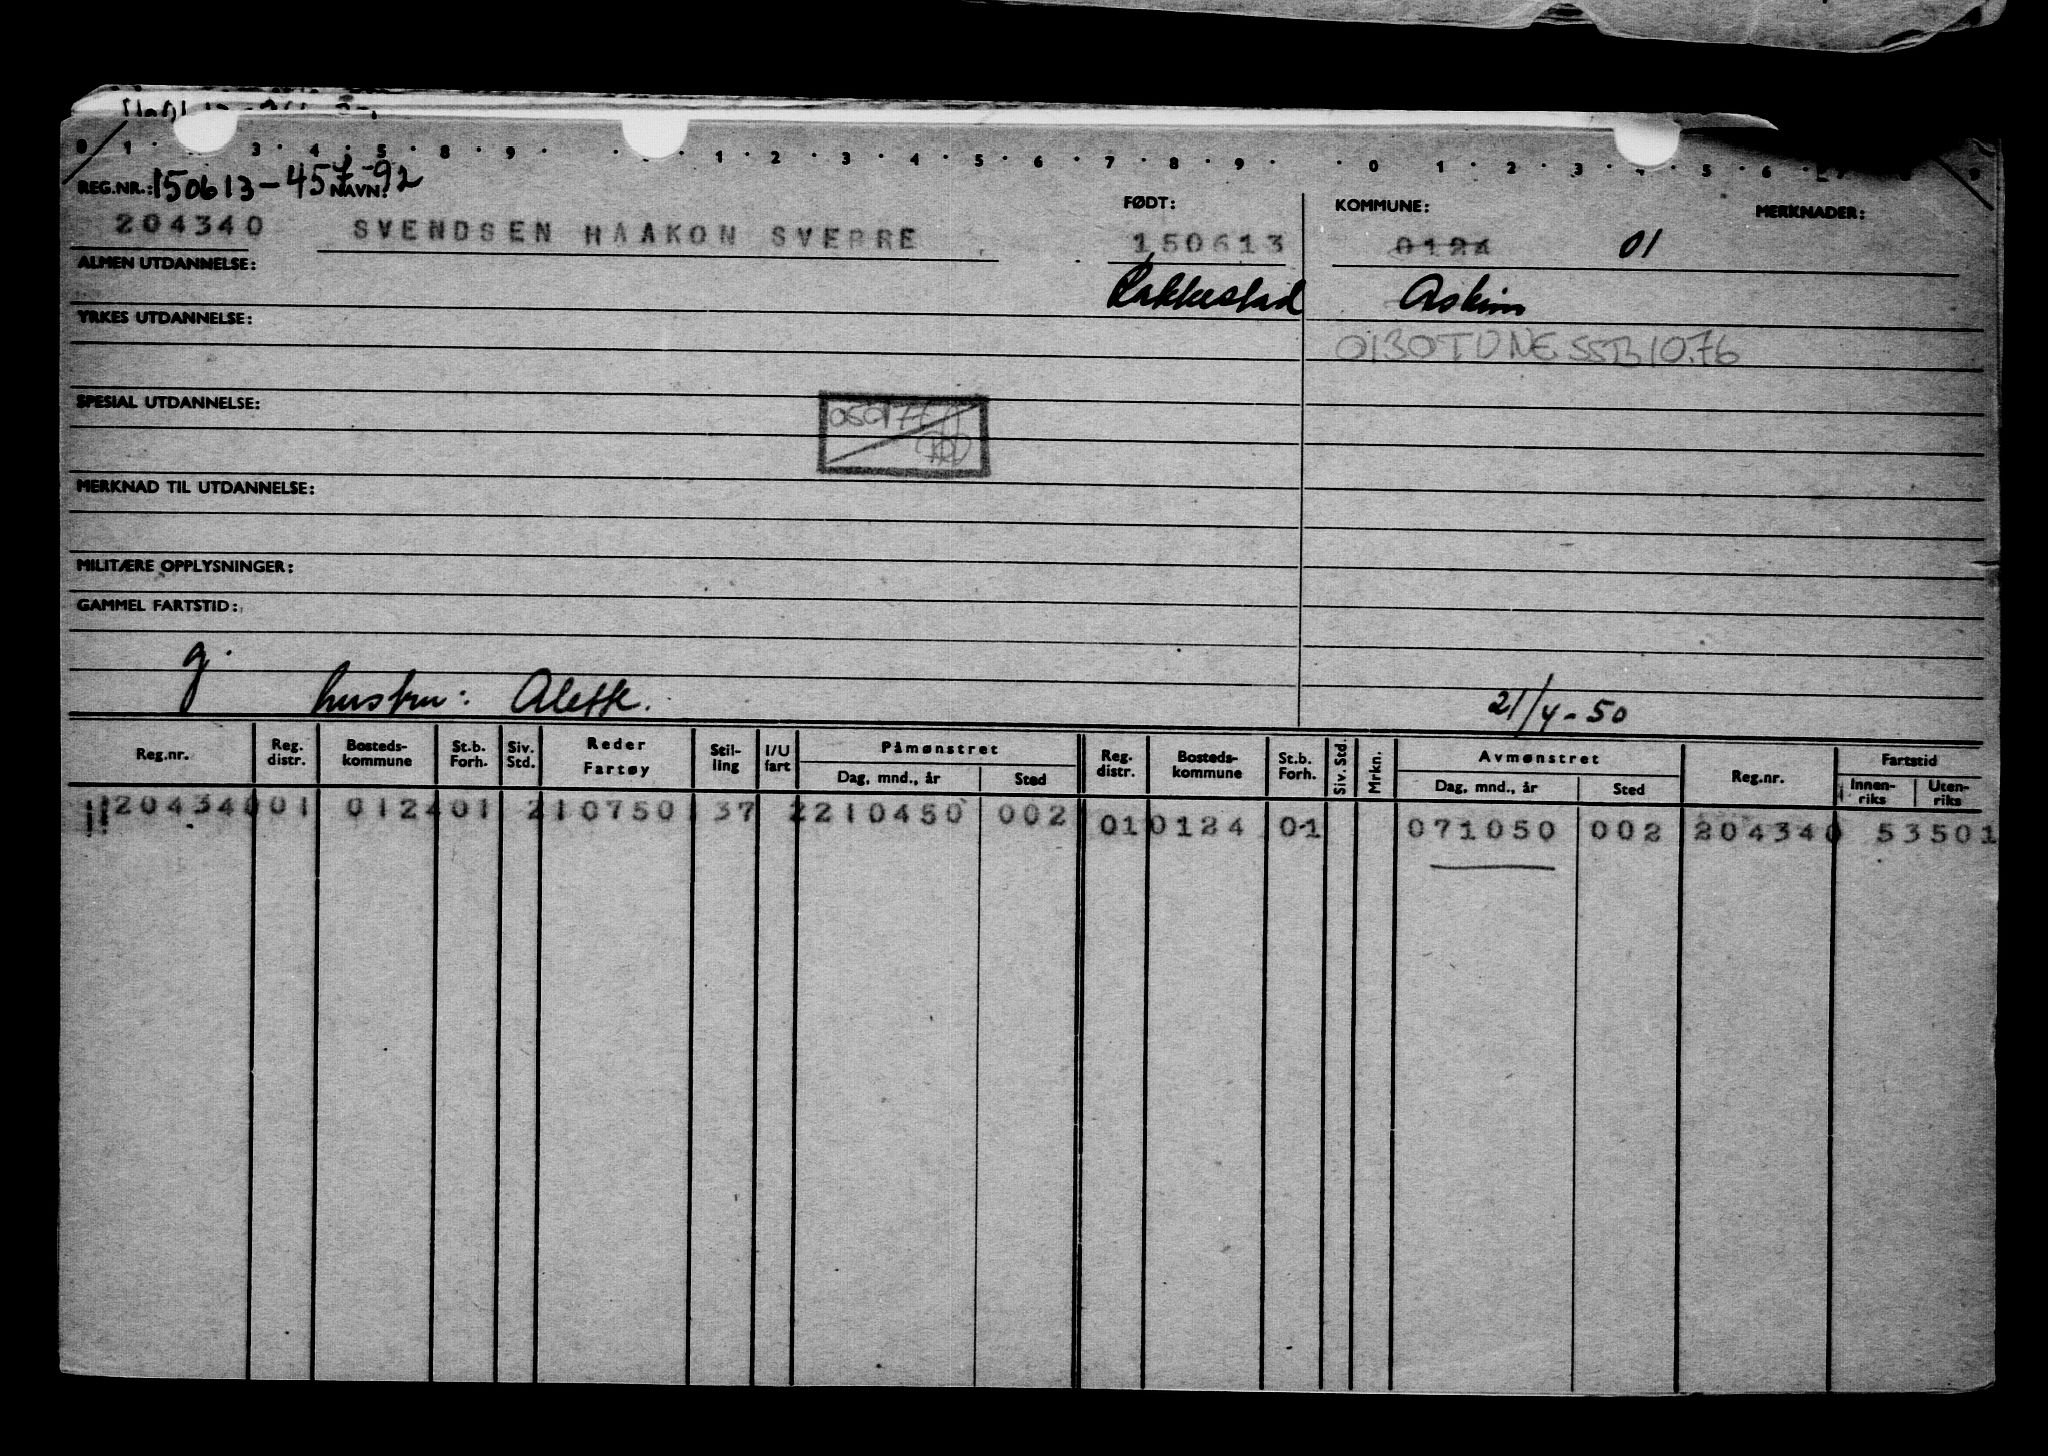 0 1 . 3 . 4 . 5 . 8 . 9 . . 1 . 2 . 3 . 4 . 5 . 6 . 7 . 8 . 9 . . 0 1 . 2 . 3 . 4 . 5 . 6 . 7 8 9
REG.NR.: 150613-457-92 NAVN:
FØDT: KOMMUNE: MERKNADER:
204340 SVENDSEN HAAKON SVERRE 150613 0124 01
ALMEN UTDANNELSE: Rakkestad Askim
YRKES UTDANNELSE:
0130 TUNE SSB 10.76
SPESIAL UTDANNELSE:
MERKNAD TIL UTDANNELSE:
MILITÆRE OPPLYSNINGER:
GAMMEL FARTSTID:
g.
hustru: Alette. 21/4-50
Reg.nr. Reg. distr. Bosteds-kommune St.b. Forh. Siv. Std. Reder Fartøy Stil-ling I/U fart Påmønstret Dag, mnd., år Sted Reg. distr. Bosteds-kommune St.b. Forh. Siv. Std. Mrkn. Avmønstret Dag, mnd., år Sted Reg.nr. Fartstid Innen-riks Uten-riks
204340 01 0124 01 2 10750 37 2 210450 002 01 0124 01 071050 002 204340 53501